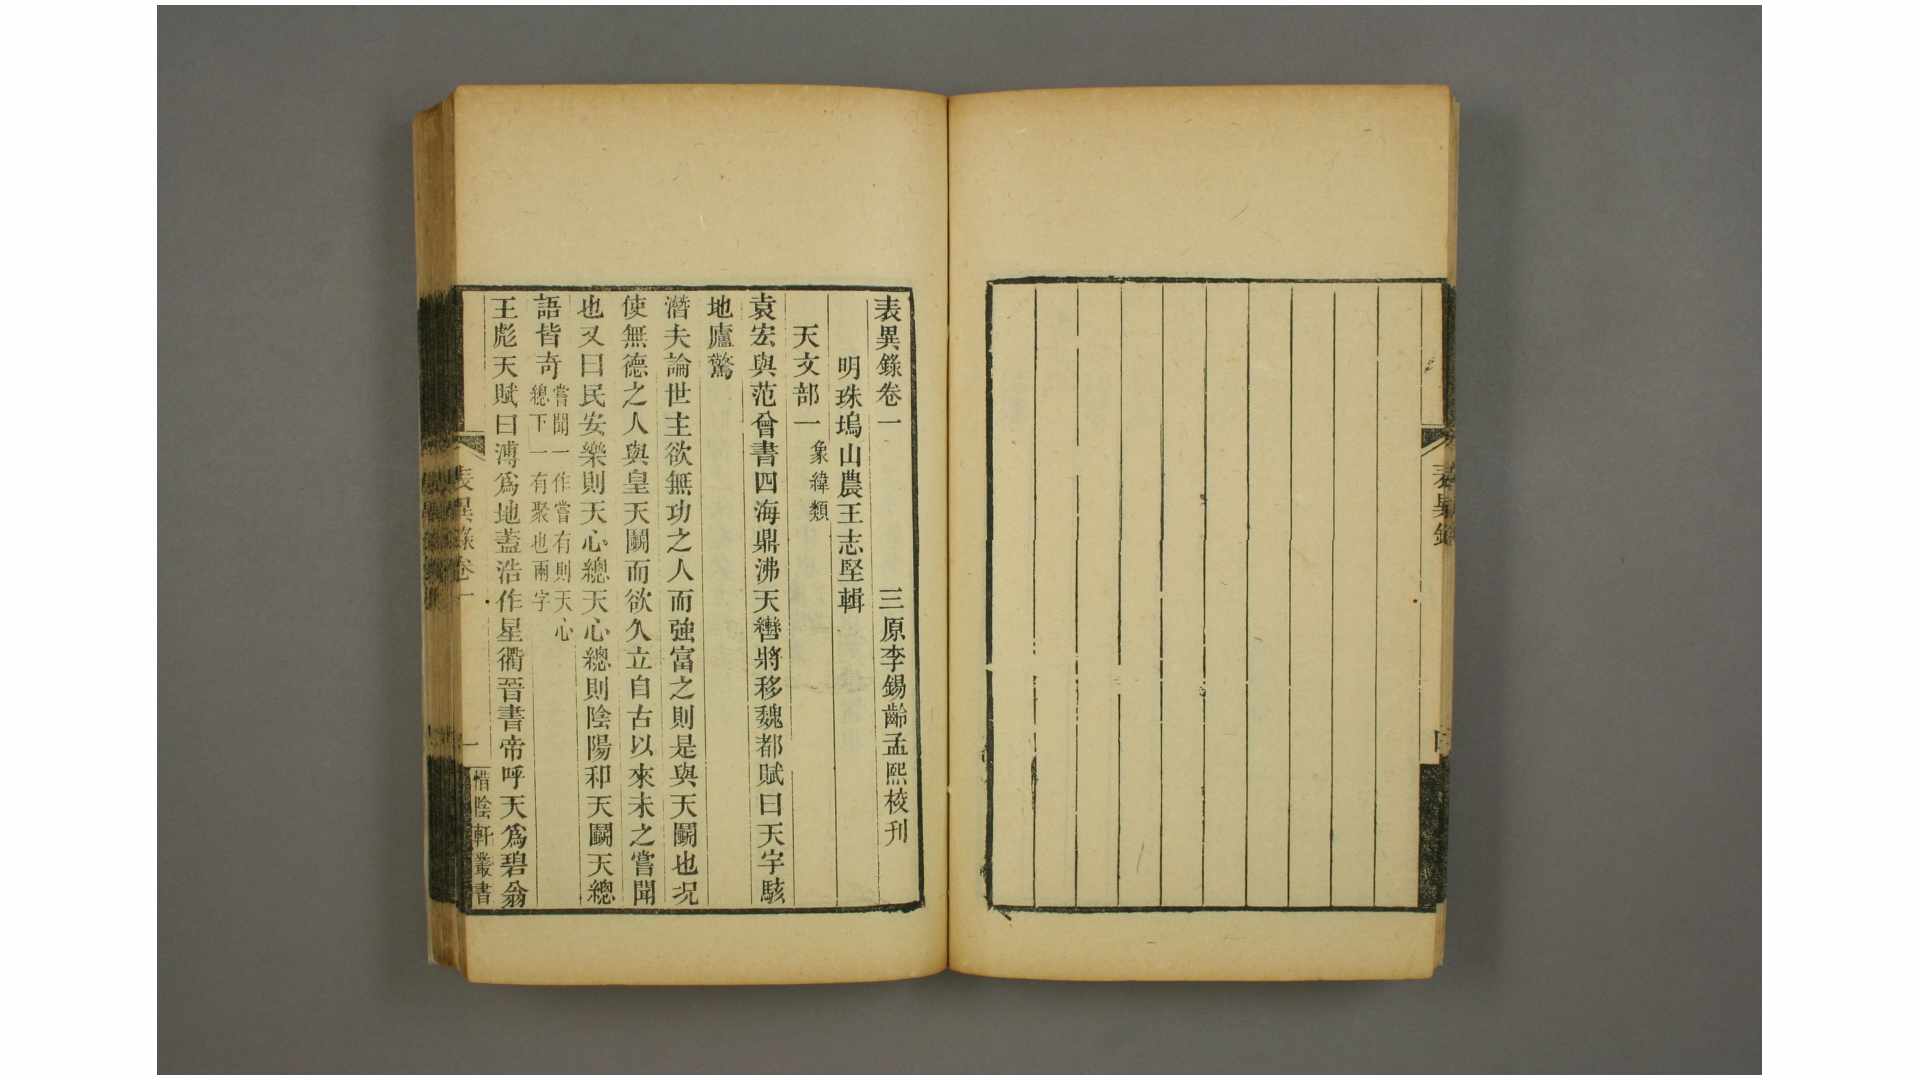 表異錄
表異錄卷一　三原李錫齡孟熙校刊
明珠塢山農王志堅輯
天文部一 象緯類
袁宏與范曾書四海鼎沸天轡將移魏都賦曰天宇駭
地廬驚
潛夫論世主欲無功之人而強富之則是與天鬭也況
使無德之人與皇天鬭而欲久立自古以來未之嘗聞
也又曰民安樂則天心總天心總則陰陽和天鬭天總
語皆奇 嘗聞一作嘗有則天心
總下一有聚也兩字
王彪天賦曰溥爲地蓋浩作星衢晉書帝呼天爲碧翁
表異錄卷一
一
惜陰軒叢書